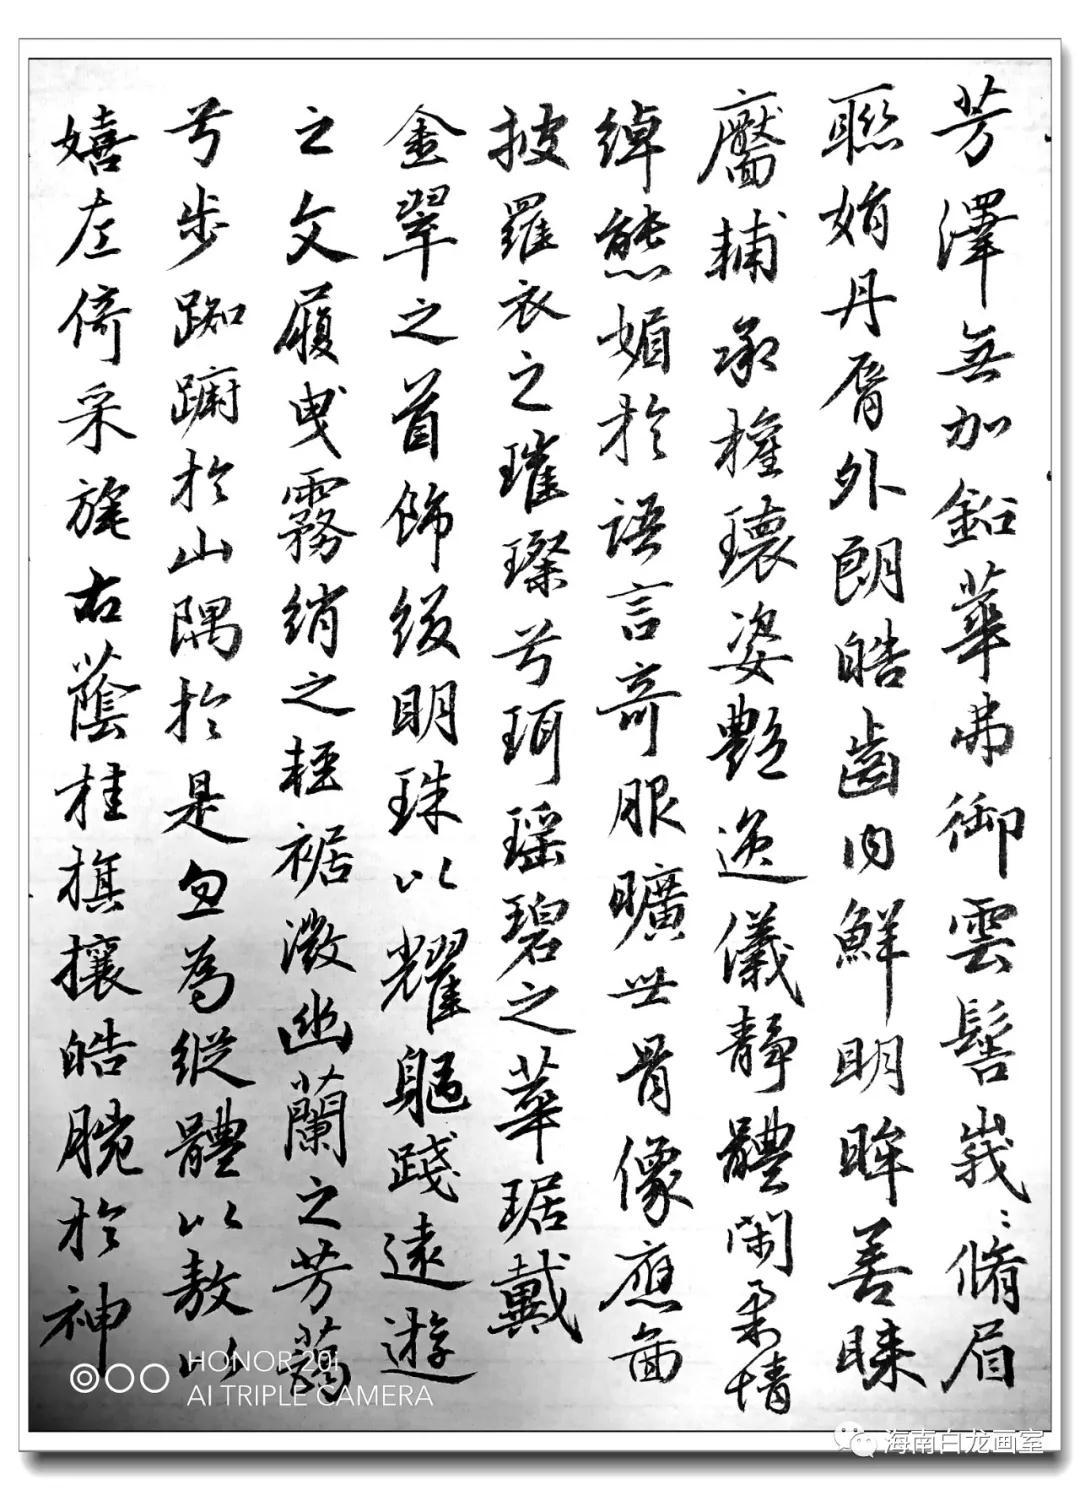 芳澤無加鉛華弗御雲髻峩：脩眉
聯娟丹脣外朗皓齒内鮮明眸善睞
靨輔承權瓌姿艶逸儀靜體閑柔情
綽態媚於語言奇服曠世骨像應圖
披羅衣之璀璨兮珥瑶碧之華琚戴
金翠之首飾綴明珠以耀軀踐遠遊
之文履曳霧綃之輕裾微幽蘭之芳藹
兮步踟躕於山隅於是忽為縱體以敖以
嬉左倚采旄右蔭桂旗攘皓腕於神
HONOR 20i
AI TRIPLE CAMERA
海南白龙画室